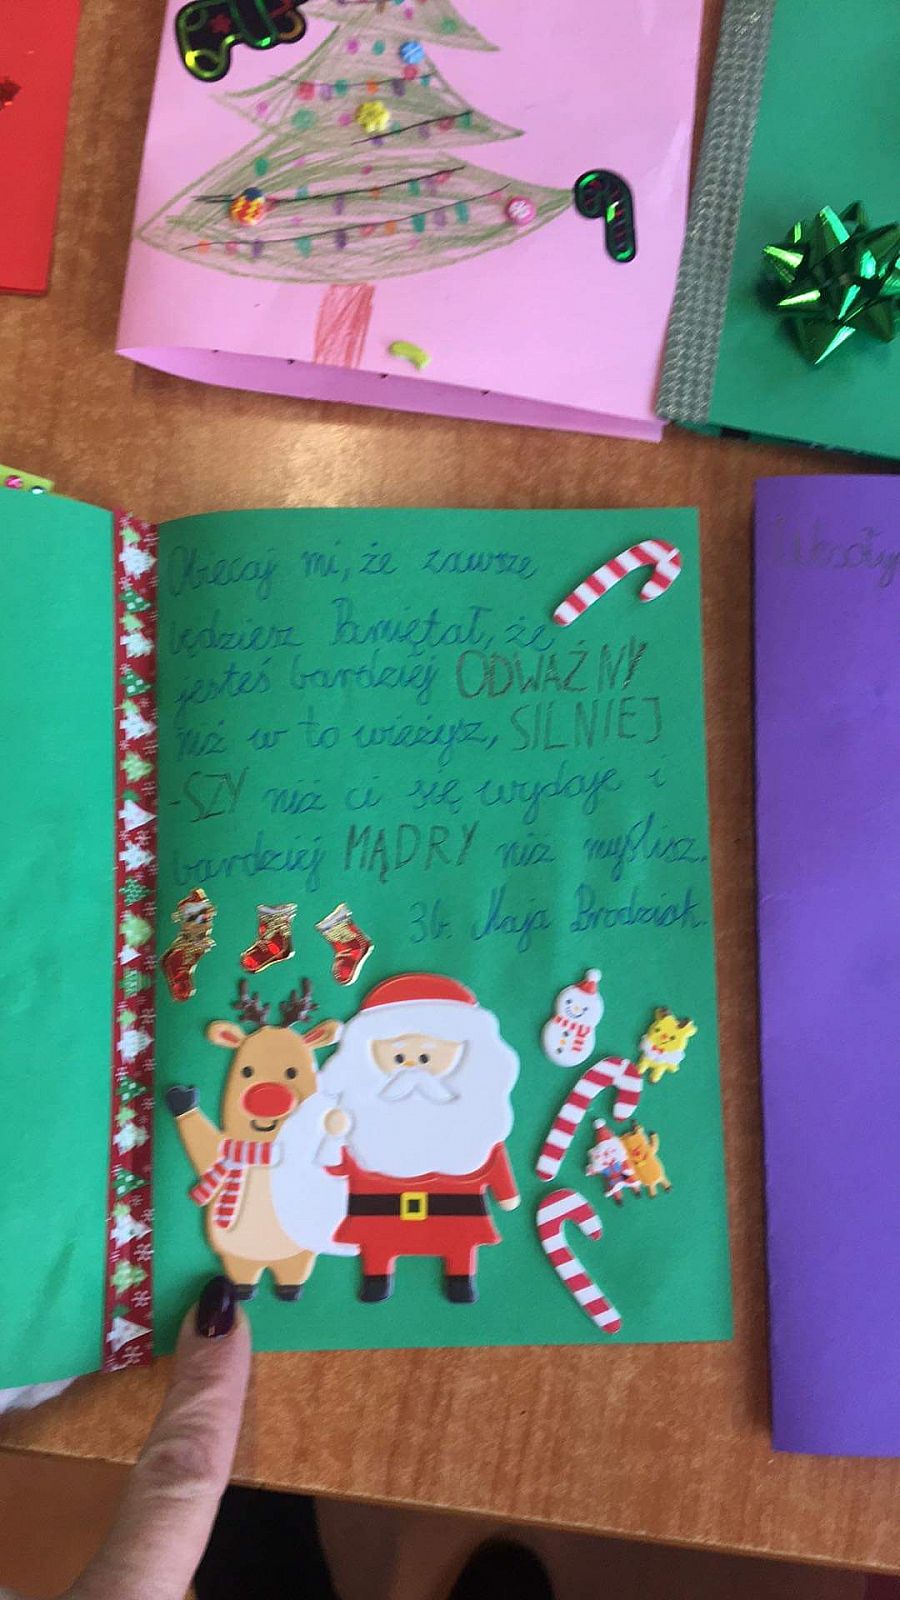 Obiecaj mi, że zawsze
będziesz Pamiętał, że
jesteś bardziej ODWAŻNY
niż w to wieżysz, SILNIEJ
-SZY niż ci się wydaje i
bardziej MĄDRY niż myślisz.
3b. Maja Brodziak.